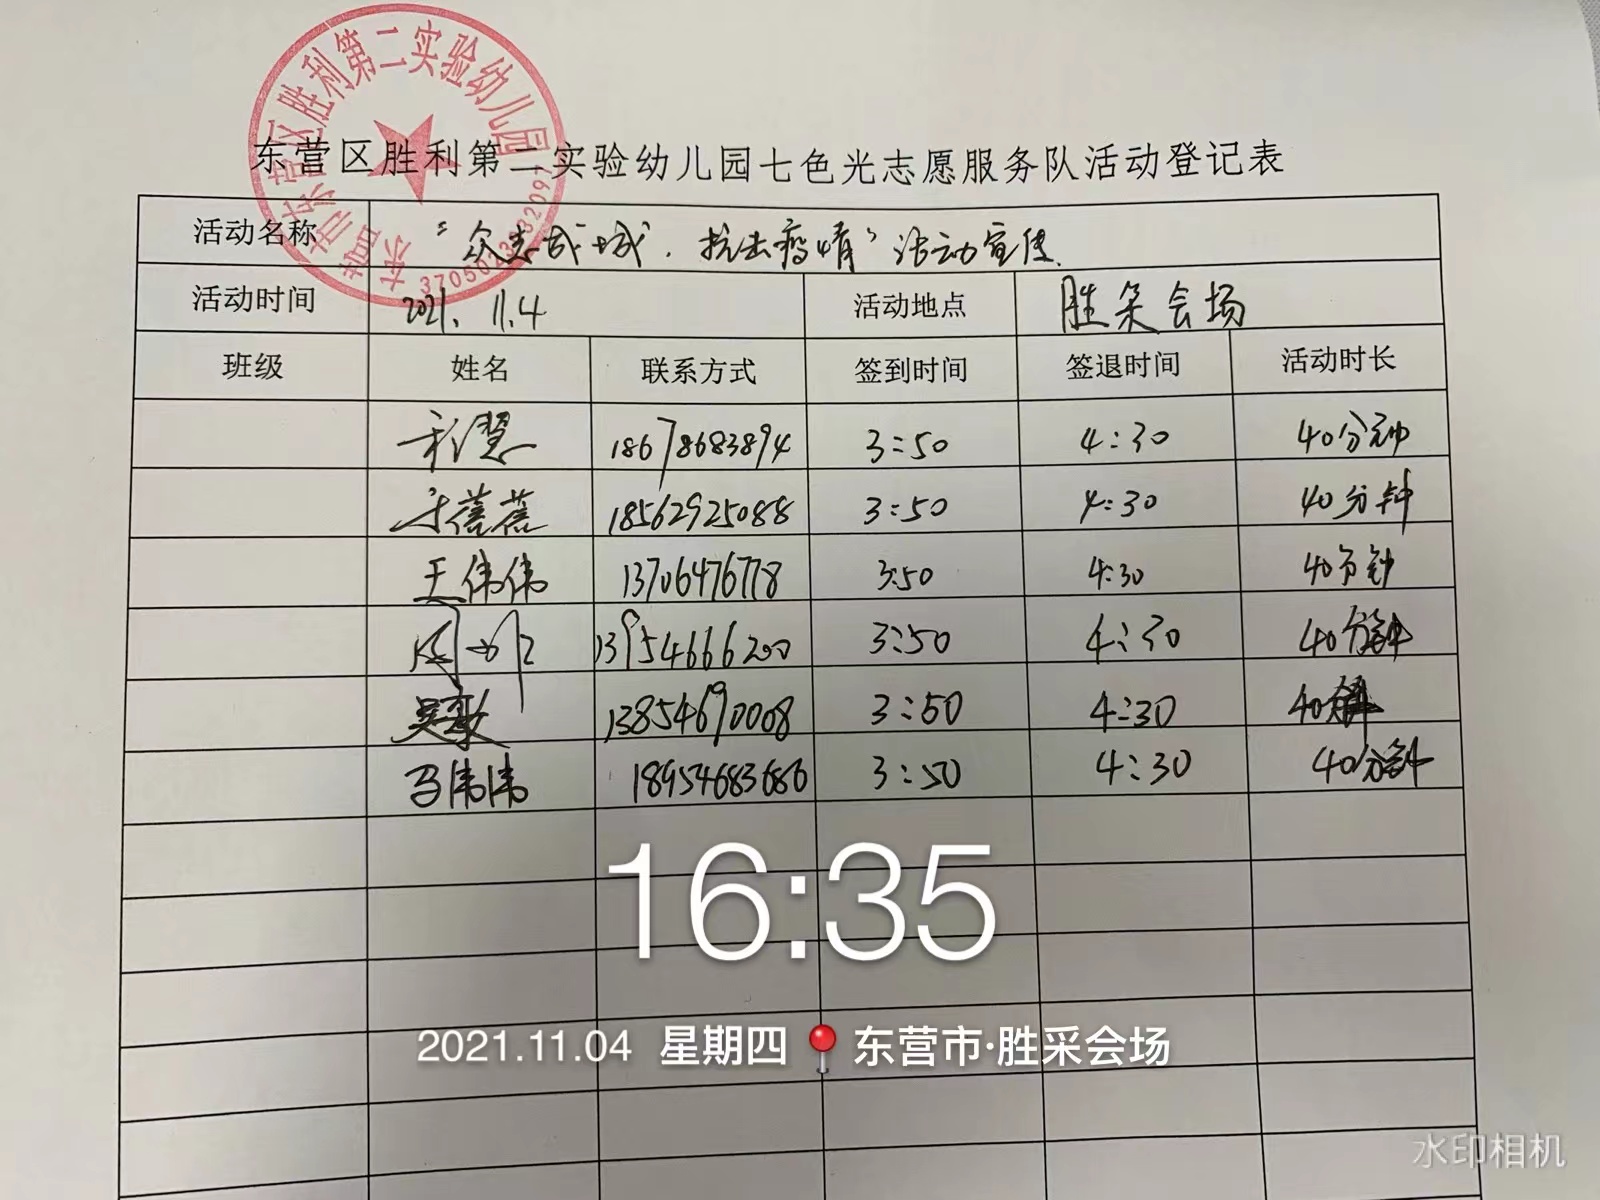 东营区胜利第二实验幼儿园
东营区胜利第二实验幼儿园七色光志愿服务队活动登记表
活动名称 “众志成城，抗击疫情”活动宣传
活动时间 2021.11.4 活动地点 胜采会场
班级 姓名 联系方式 签到时间 签退时间 活动时长
慧 18678683894 3:50 4:30 40分钟
蓓蓓 18562925088 3:50 4:30 40分钟
王伟伟 13706476778 3:50 4:30 40分钟
周 13954666200 3:50 4:30 40分钟
吴 13854690008 3:50 4:30 40分钟
马伟伟 18954683686 3:50 4:30 40分钟
16:35
2021.11.04 星期四 东营市·胜采会场
水印相机